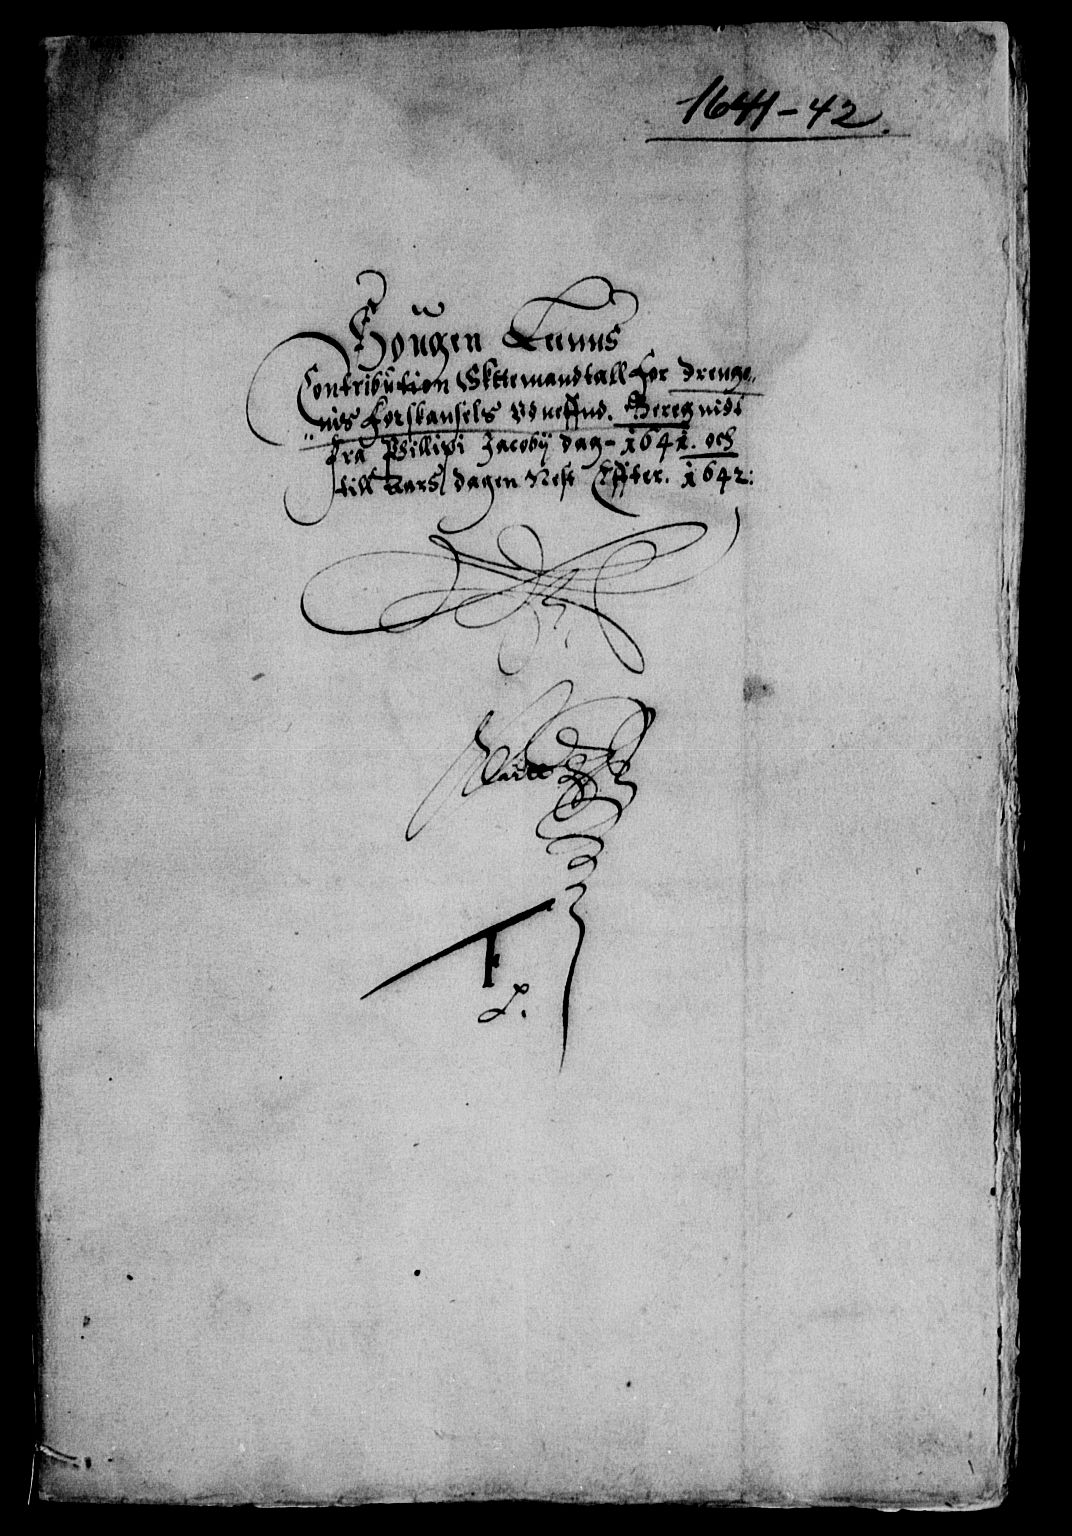 1641-42.
Hougen Leenns
Contribution Skttemandtall for drenge„
„nis forskansels Vdneffnd. Beregnidt
fra Phillipi Jacobÿ dag- 1641. och
till Aars dagen Nest Effter. 1642: